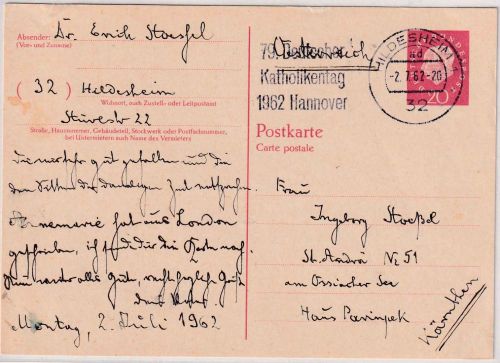 Absender: Dr. Erich Stoessel
(Vor- und Zuname)
(32) Hildesheim
Wohnort, auch Zustell- oder Leitpostamt
Stüvestr 22
Straße, Hausnummer, Gebäudeteil, Stockwerk oder Postfachnummer,
bei Untermietern auch Name des Vermieters
79. Deutscher
Katholikentag
1962 Hannover
Österreich
HILDESHEIM
-2.7.62-20
32
DEUTSCHE BUNDESPOST
20
Postkarte
Carte postale
gut gefallen und die
den
Annemarie hat aus London
geschrieben, ich sende dir die Karte nach.
Nun alles Gute, recht herzliche Grüße
Montag, 2. Juli 1962
Frau
Ingeborg Stoeßel
St. Andrä № 51
am Ossiacher See
Haus
Kärnten